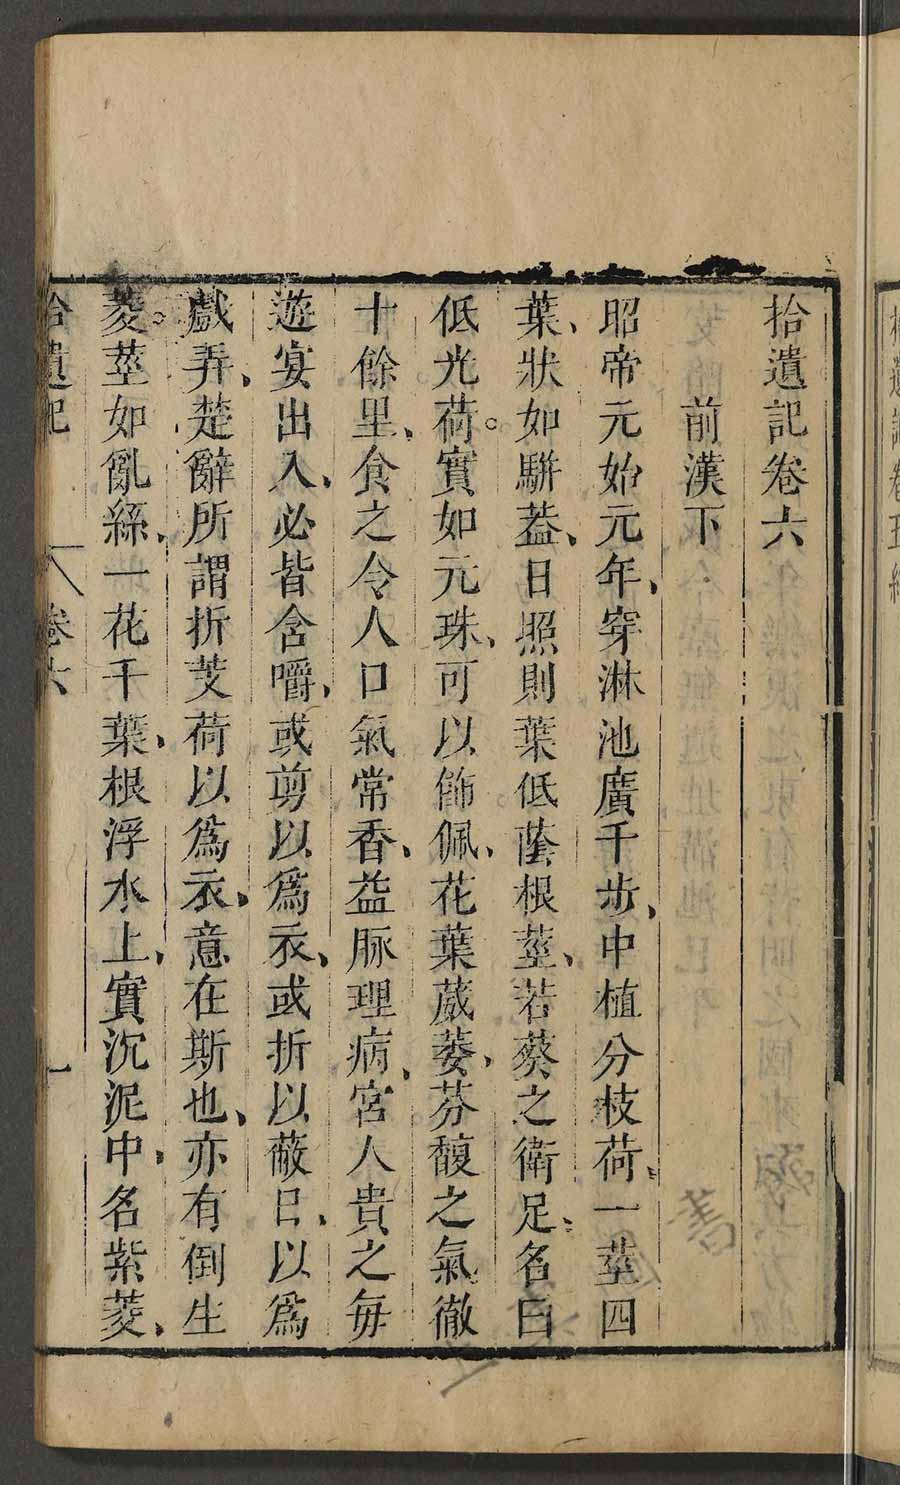 拾遺記卷六
前漢下
昭帝元始元年、穿淋池廣千步、中植分枝荷、一莖四
葉、狀如駢蓋、日照則葉低蔭根莖、若葵之衛足、名曰
低光荷。實如元珠、可以飾佩、花葉葳萎、芬馥之氣徹
十餘里、食之令人口氣常香、益脉理病、宮人貴之每
遊宴出入、必皆含嚼、或剪以爲衣、或折以蔽日、以爲
戲弄、楚辭所謂折芰荷以爲衣、意在斯也、亦有倒生
菱。莖如亂絲、一花千葉、根浮水上、實沉泥中、名紫菱、
拾遺記 卷六 一